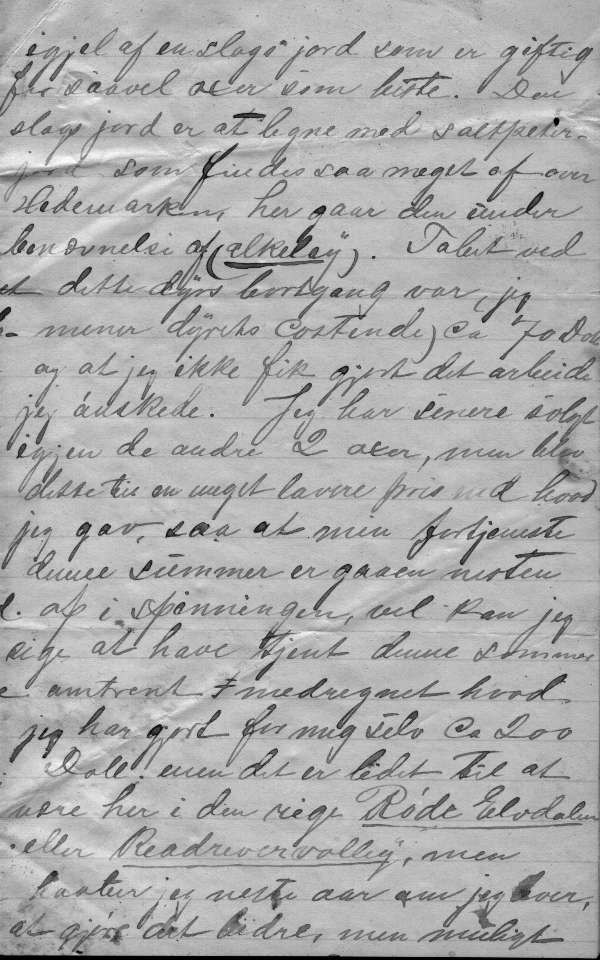 igjel af en slags jord som er giftig
for saavel oxer som heste. Den
slags jord er at ligne med saltpeter-
jord som findes saa meget af over
Hedemarken, her gaar den under
benævnelse af (alkeley). Tabet ved
dette dyrs bortgang var, jeg
mener dyrets costende) Ca 70 Doll
og at jeg ikke fik gjort det arbeide
jeg ønskede. Jeg har senere solgt
igjen de andre 2 oxer, men blev
dette til en meget lavere pris ned hvad
jeg gav, saa at men fortjeneste
denne summer er gaaen nesten
op i spinningen, vel kan jeg
sige at have tjent denne sommer
amtrent medregnet hvad
jeg har gjort for mig selv Ca 200
Doll. men det er lidet til at
være her i den rige Røde Elvdalen
eller Readrevervolley, men
haaber jeg neste aar om jeg lever,
at gjøre det bedre, men muligt